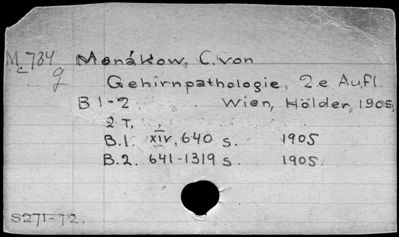 Mc 734 g Monákow, C. von
Gehirnpathologie, 2e Aufl.
B 1-2 Wien, Hölder, 1905,
2 T,
B.1. XIV, 640 s. 1905
B.2. 641-1319 s. 1905.
S271-72.